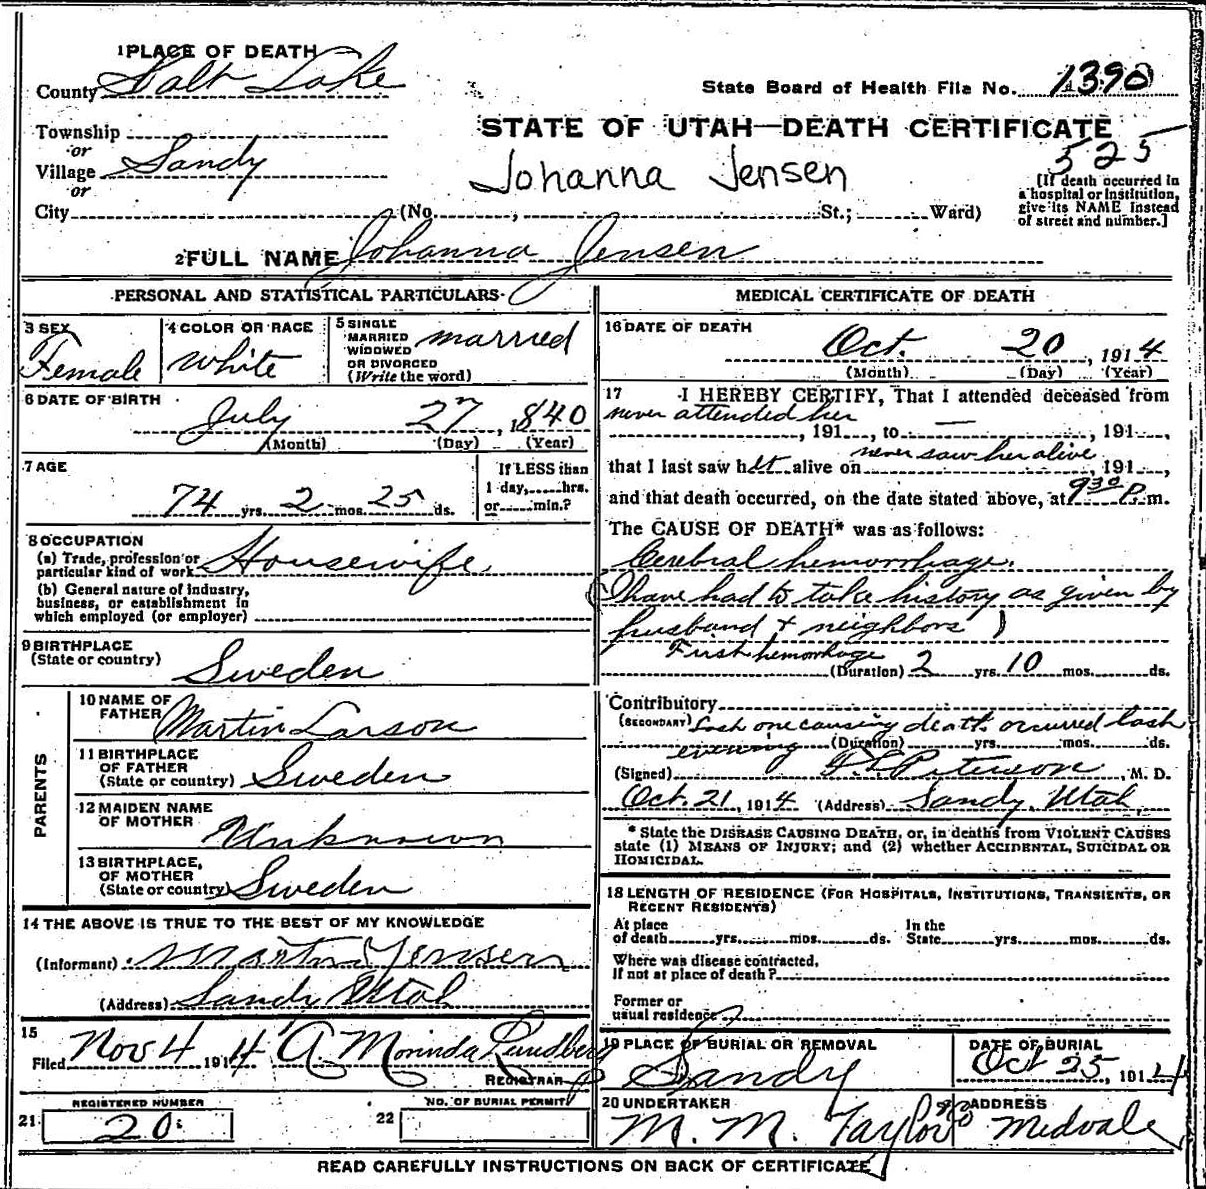 1 PLACE OF DEATH
County Salt Lake
State Board of Health File No. 1390
Township
or
Village Sandy
or
City (No. , St.; Ward)
STATE OF UTAH—DEATH CERTIFICATE
525
Johanna Jensen
[If death occurred in
a hospital or institution,
give its NAME instead
of street and number.]
2 FULL NAME Johanna Jensen
PERSONAL AND STATISTICAL PARTICULARS
3 SEX
Female
4 COLOR OR RACE
white
5 SINGLE
MARRIED
WIDOWED
OR DIVORCED
(Write the word)
married
6 DATE OF BIRTH
July 27, 1840
(Month) (Day) (Year)
7 AGE
74 yrs. 2 mos. 25 ds.
If LESS than
1 day, hrs.
or min.?
8 OCCUPATION
(a) Trade, profession or
particular kind of work Housewife
(b) General nature of industry,
business, or establishment in
which employed (or employer)
9 BIRTHPLACE
(State or country)
Sweden
PARENTS
10 NAME OF
FATHER Martin Larson
11 BIRTHPLACE
OF FATHER
(State or country) Sweden
12 MAIDEN NAME
OF MOTHER Unknown
13 BIRTHPLACE,
OF MOTHER
(State or country) Sweden
14 THE ABOVE IS TRUE TO THE BEST OF MY KNOWLEDGE
(Informant) Jensen
(Address) Sandy Utah
15
Filed Nov 4 1914 A Morinda Lundberg
REGISTRAR
REGISTERED NUMBER
21 20
NO. OF BURIAL PERMIT
22
MEDICAL CERTIFICATE OF DEATH
16 DATE OF DEATH
Oct. 20, 1914
(Month) (Day) (Year)
17 I HEREBY CERTIFY, That I attended deceased from
never attended her
, 191 , to — , 191 ,
never saw her alive
that I last saw her alive on , 191 ,
and that death occurred, on the date stated above, at 9 30 P. m.
The CAUSE OF DEATH* was as follows:
Cerebral hemorrhage.
(I have had to take history as given by
husband & neighbors)
First hemorrhage
(Duration) 2 yrs. 10 mos. ds.
Contributory
(SECONDARY) Last one causing death occurred last
evening (Duration) yrs. mos. ds.
(Signed) Peterson M. D.
Oct. 21, 1914 (Address) Sandy, Utah
* State the DISEASE CAUSING DEATH, or, in deaths from VIOLENT CAUSES
state (1) MEANS OF INJURY; and (2) whether ACCIDENTAL, SUICIDAL OR
HOMICIDAL.
18 LENGTH OF RESIDENCE (FOR HOSPITALS, INSTITUTIONS, TRANSIENTS, OR
RECENT RESIDENTS)
At place
of death yrs. mos. ds.
In the
State yrs. mos. ds.
Where was disease contracted,
if not at place of death?
Former or
usual residence
19 PLACE OF BURIAL OR REMOVAL
Sandy
DATE OF BURIAL
Oct 25, 1914
20 UNDERTAKER
M. M. Taylor
ADDRESS
Midvale
READ CAREFULLY INSTRUCTIONS ON BACK OF CERTIFICATE